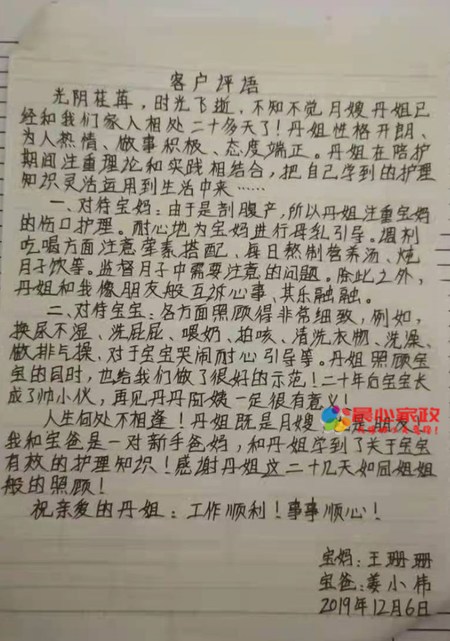 客户评语
光阴荏苒，时光飞逝，不知不觉月嫂丹姐已
经和我们家人相处二十多天了！丹姐性格开朗、
为人热情、做事积极、态度端正。丹姐在陪护
期间注重理论和实践相结合，把自己学到的护理
知识灵活运用到生活中来……
一、对待宝妈：由于是剖腹产，所以丹姐注重宝妈
的伤口护理。耐心地为宝妈进行母乳引导。调剂
吃喝方面注意荤素搭配、每日熬制营养汤、炖
月子饮等。监督月子中需要注意的问题。除此之外，
丹姐和我像朋友般互诉心事、其乐融融。
二、对待宝宝：各方面照顾得非常细致，例如，
换尿不湿、洗屁屁、喂奶、拍咳、清洗衣物、洗澡、
做排气操、对于宝宝哭闹耐心引导等。丹姐照顾宝
宝的同时，也给我们做了很好的示范！二十年后宝宝长
成了帅小伙，再见丹丹阿姨一定很有意义！
人生何处不相逢！丹姐既是月嫂
我和宝爸是一对新手爸妈，和丹姐学到了关于宝宝
有效的护理知识！感谢丹姐这二十几天如同姐姐
般的照顾！
祝亲爱的丹姐：工作顺利！事事顺心！
宝妈：王珊珊
宝爸：姜小伟
2019年12月6日
心家政